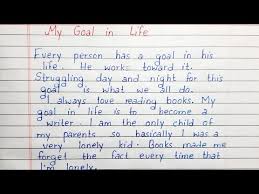 My Goal in Life
Every person has a goal in his
life. He works toward it.
Struggling day and night for this
goal is what we all do.
I always love reading books. My
goal in life is to become a
writer. I am the only child of
my parents so basically I was a
very lonely kid. Books made me
forget the fact every time that
I'm lonely.